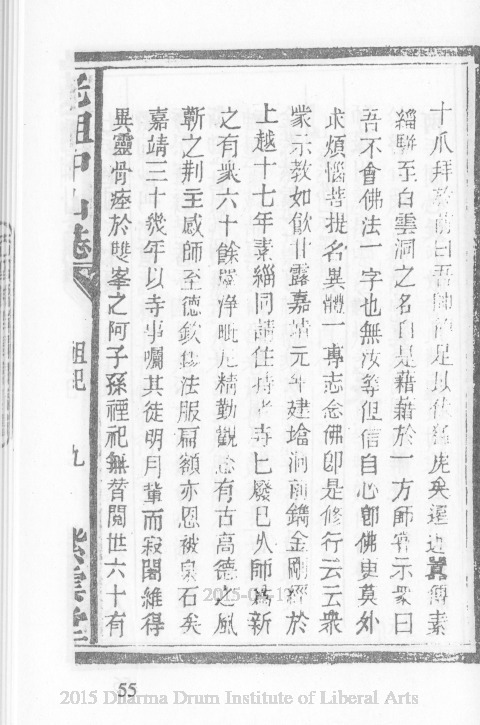 十爪拜於前曰吾師神足以伏猛虎矣遐邇異傳素
緇駢至白雲洞之名自是藉藉於一方師嘗示衆曰
吾不會佛法一字也無汝等但信自心卽佛更莫外
求煩惱菩提名異體一專志念佛卽是修行云云衆
蒙示教如飲甘露嘉靖元年建塔洞前鐫金剛經於
上越十七年素緇同請住持老寺已廢已久師爲新
之有衆六十餘單淨毗尼精勤觀念有古高德之風
蘄之荆主感師至德欽錫法服扁額亦恩被泉石矣
嘉靖三十幾年以寺事囑其徒明月輩而寂闍維得
異靈骨瘞於雙峯之阿子孫禋祀無替閱世六十有
老祖中山志
祖 九
紫雲堂
55
2015-05-13
2015 Dharma Drum Institute of Liberal Arts